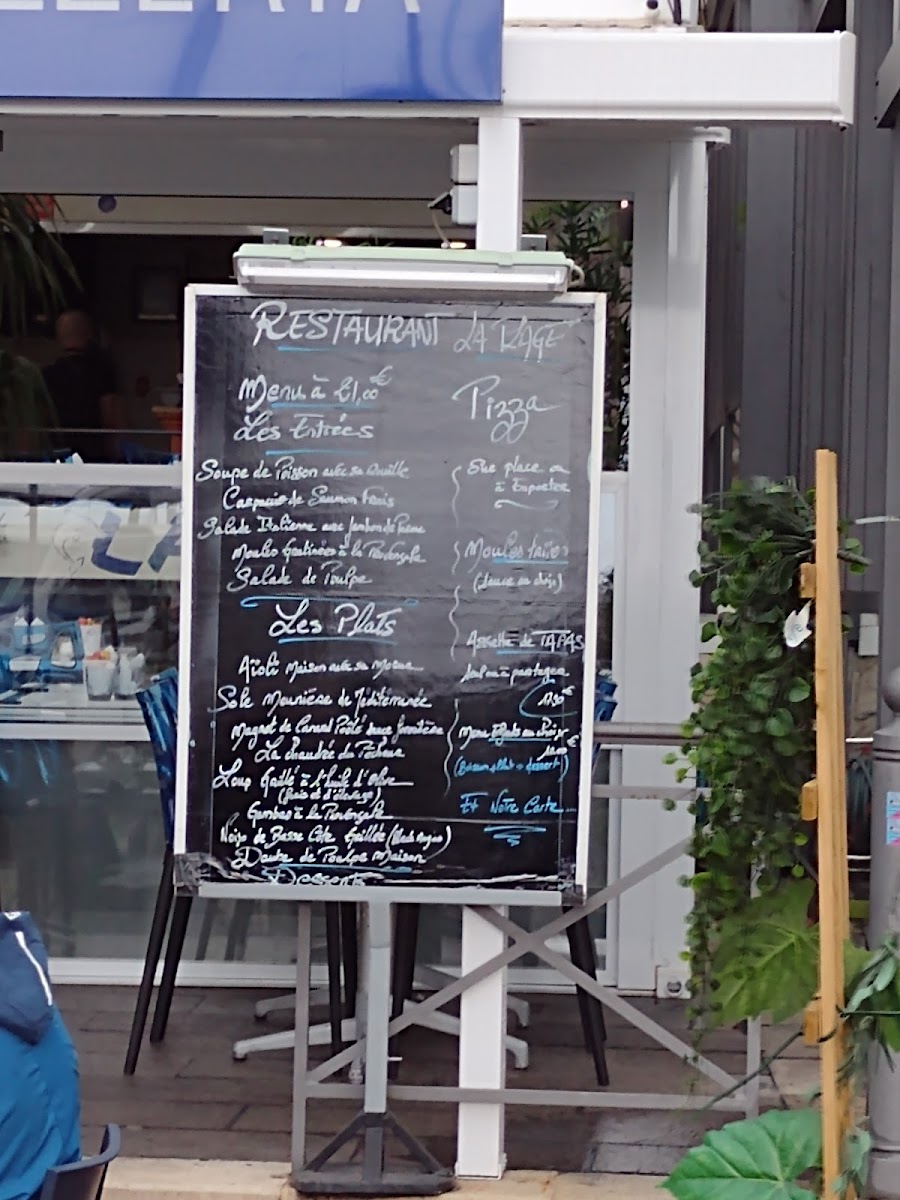 RESTAURANT LA RAGE
Menu à 21,00€
Les Entrées
Soupe de Poisson avec sa Rouille
Carpaccio de Saumon Frais
Salade Italienne avec Jambon de Parme
Moules Gratinées à la Provençale
Salade de Poulpe
Les Plats
Aïoli Maison avec sa Morue
Sole Meunière de Méditerranée
Magret de Canard Poêlé sauce forestière
La chaudrée du Pêcheur
Loup Grillé à l'huile d'Olive
(frais et d'élevage)
Gambas à la Provençale
Noix de Basse Côte Grillée (Black Angus)
Daube de Poulpe Maison
Desserts
Pizza
Sur place ou
à Emporter
Moules frites
(sauce au choix)
Assiette de TAPAS
à partager
17,90€
Menu au choix
(Boisson + Plat + dessert)
Et Notre Carte...